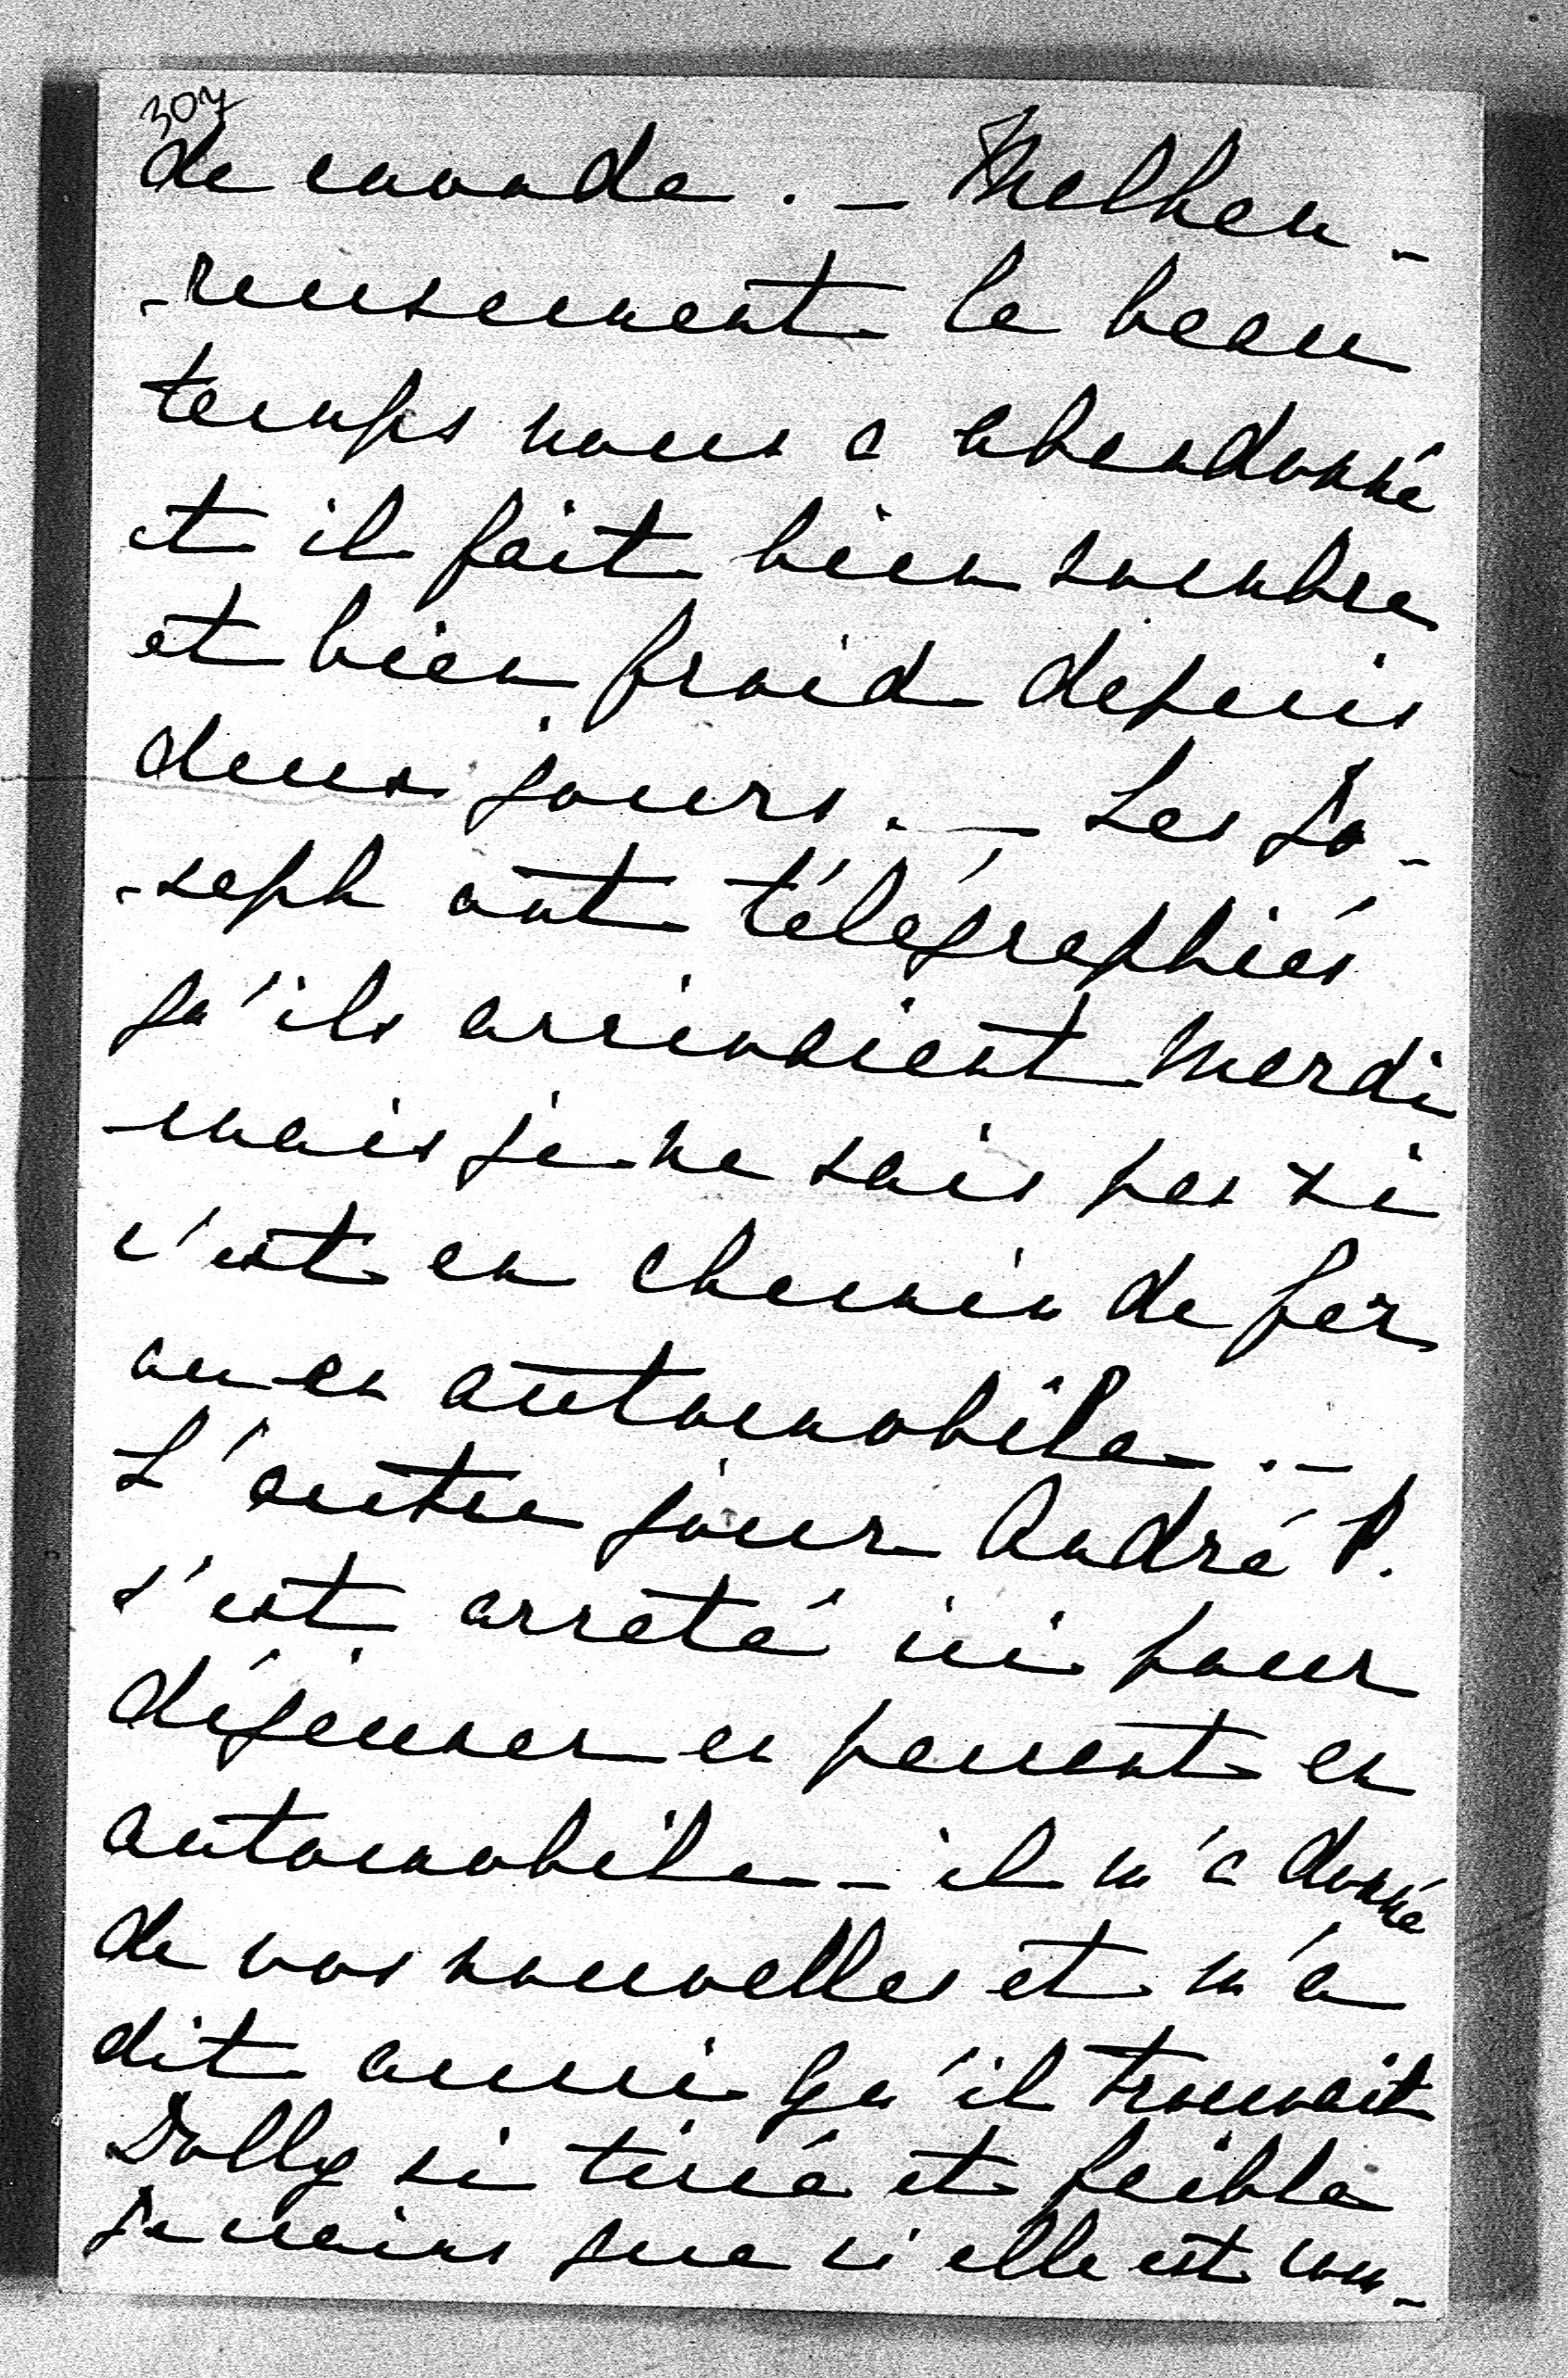 307
de monde. — Malheu-
-reusement le beau
temps nous a abandonné
et il fait bien sombre
et bien froid depuis
deux jours. — Les Jo-
-seph ont télégraphiés
qu'ils arrivaient Mardi
mais je ne sais pas si
c'est en chemin de fer
ou en automobile. —
L'autre jour André P.
s'est arrêté ici pour
déjeuner en passant en
automobile — il m'a donné
de vos nouvelles et m'a
dit aussi qu'il trouvait
Dolly si tirée et faible
Je crains que si elle est com-